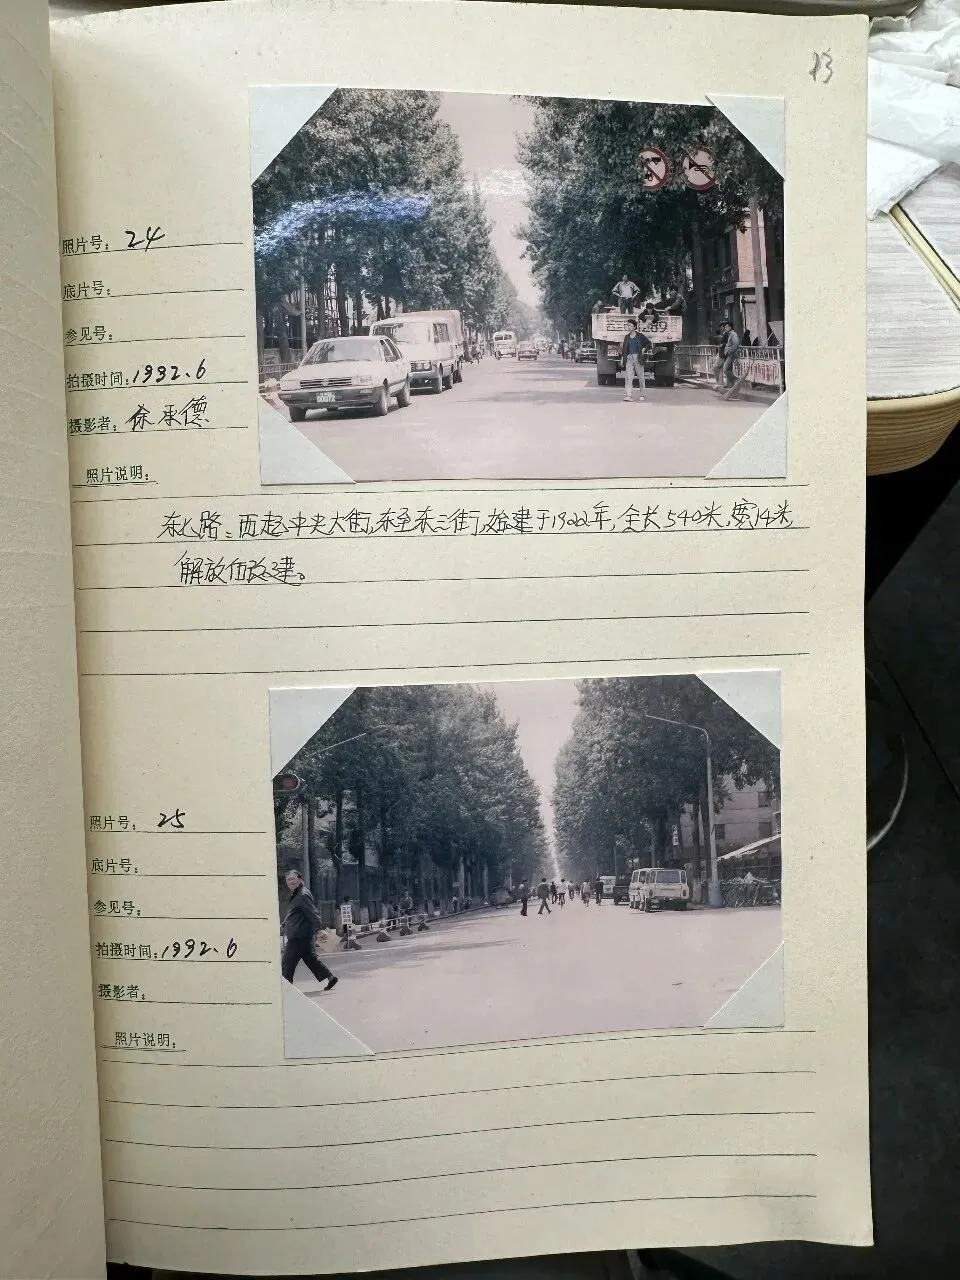 13
照片号：24
底片号：
参见号：
拍摄时间：1992.6
摄影者：徐承德
照片说明：
东七路：西起中央大街，东至东三街，始建于1922年，全长540米，宽14米，
解放后改建。
照片号：25
底片号：
参见号：
拍摄时间：1992.6
摄影者：
照片说明：